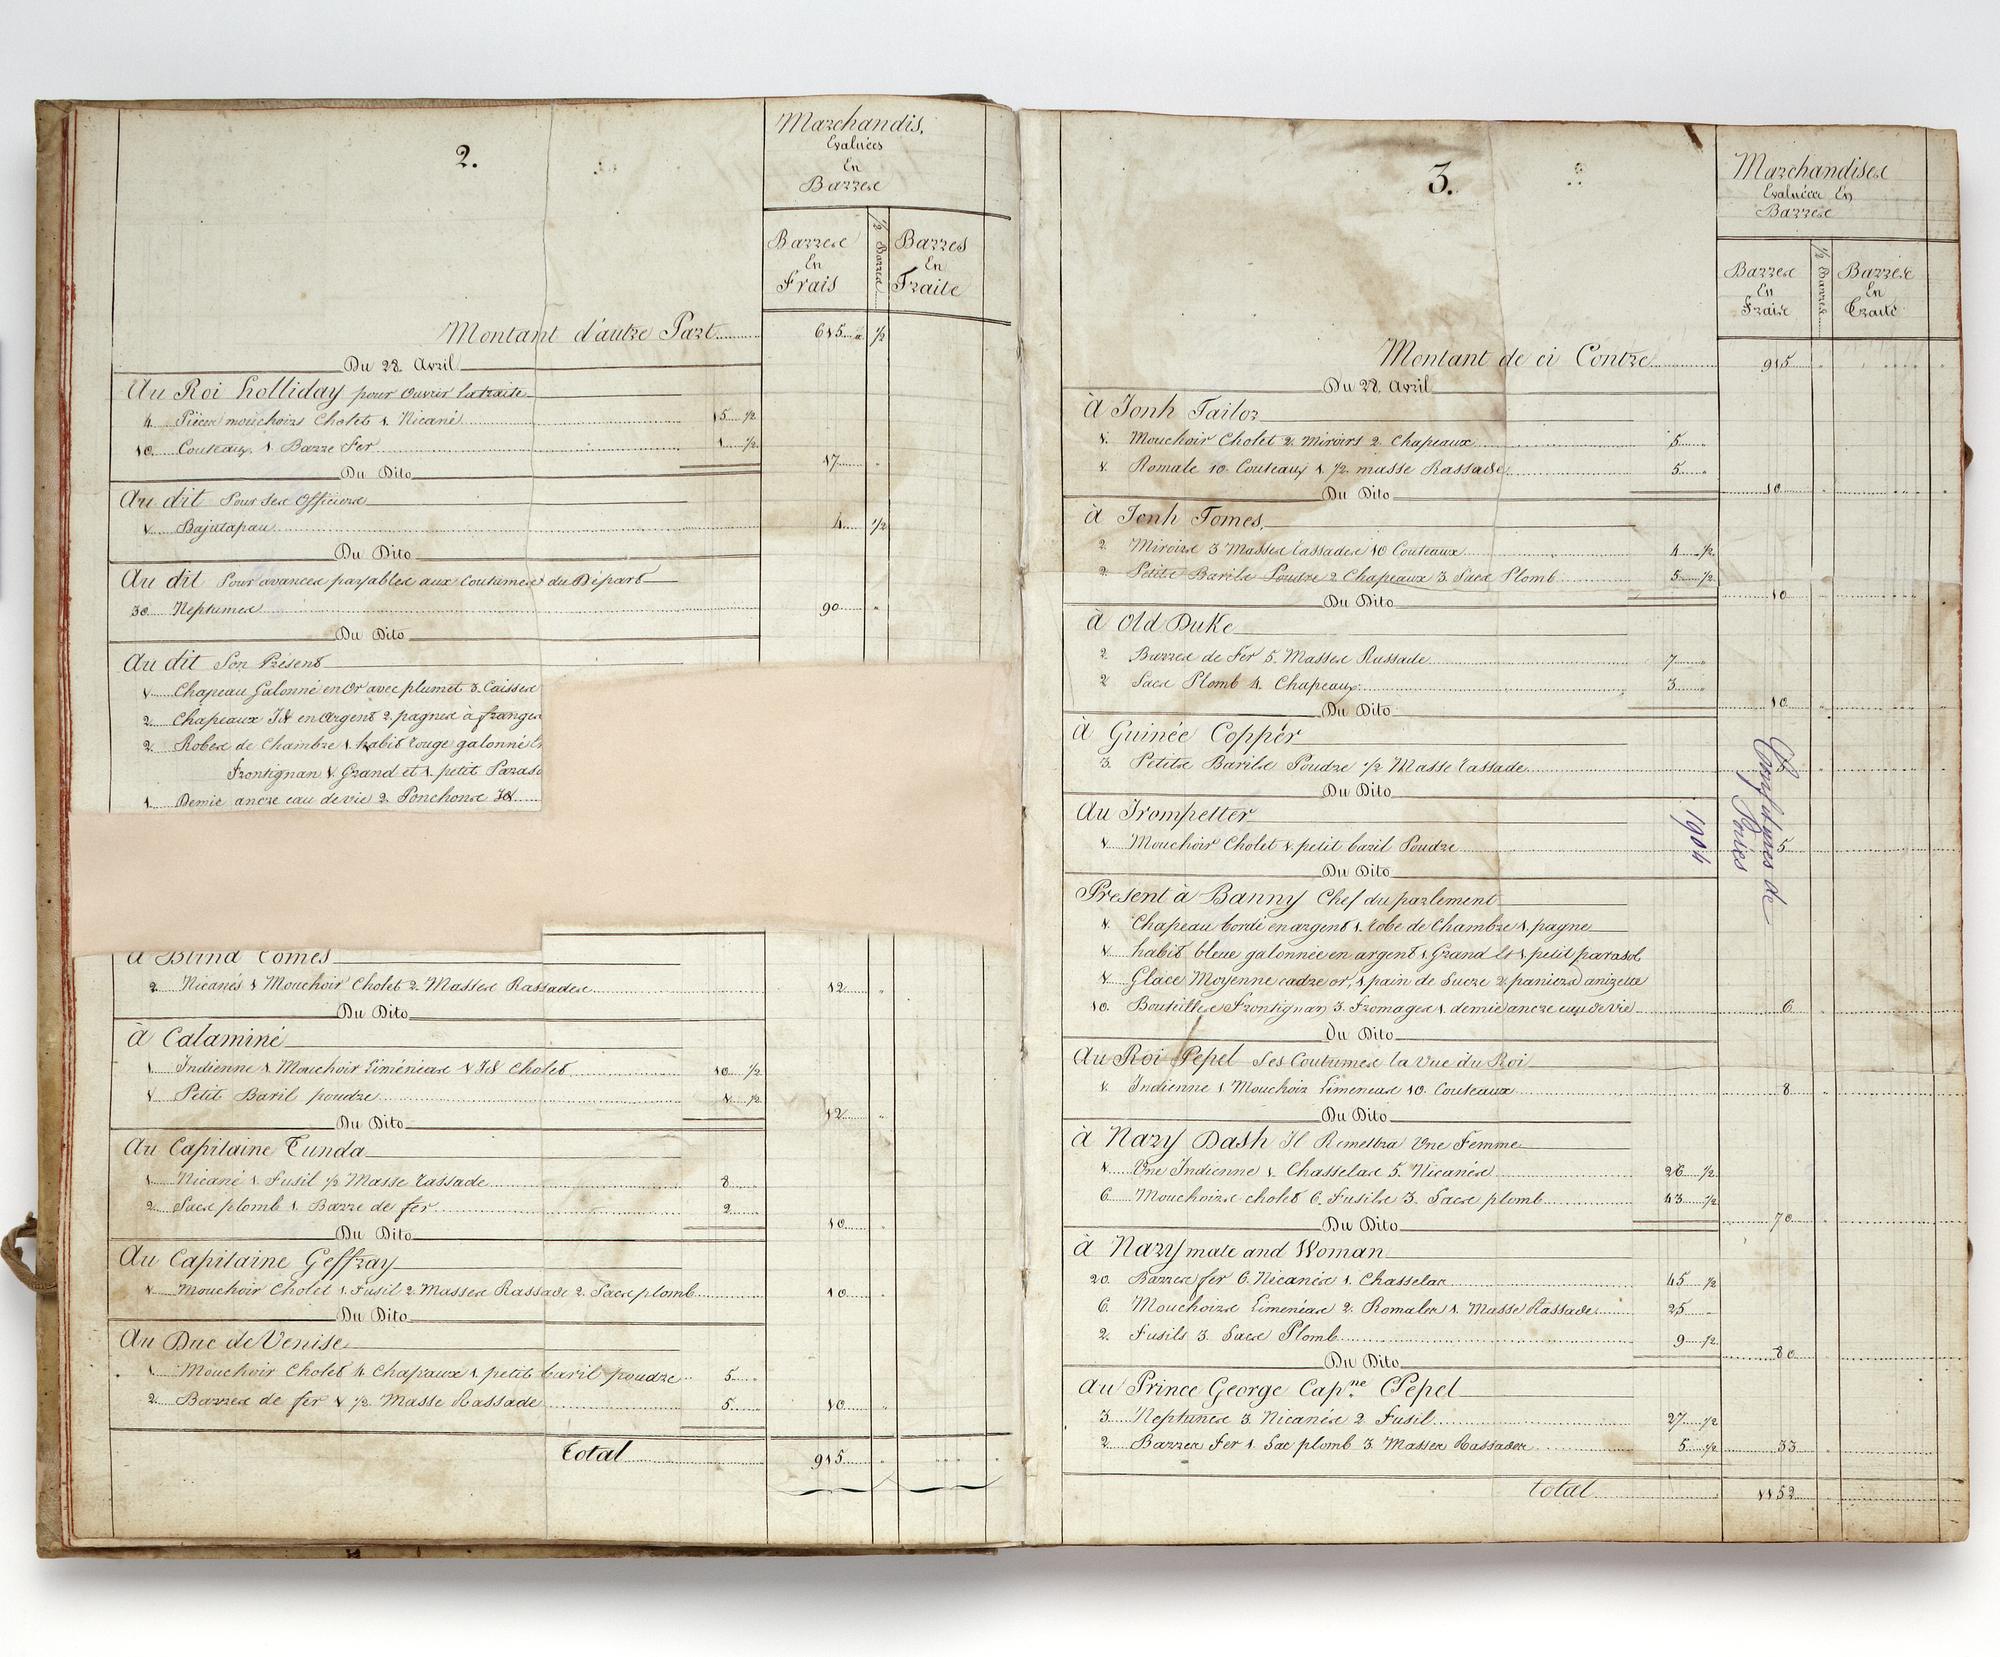 2.
Marchandis.
Evaluées
En
Barres
Barres
En
Frais
1/2 Barres
Barres
En
Traite
Montant d'autre Part 615 1/2
Du 28 Avril
Au Roi Holliday pour Ouvrir la traite
4 Pièces mouchoirs Cholet 1. Nicané 15 1/2
10 Couteaux 1. Barre Fer 1 1/2
17
Du Dito
Au dit Pour Ses Officiers
1 Bajutapau 4 1/2
Du Dito
Au dit Pour avances payables aux Coutumes du Départ
30 Neptunes 90
Du Dito
Au dit Son Présent
1 Chapeau Galonné en Or avec plumet 3 Caisses
2 Chapeaux Id en Argent 2 pagnes à franges
2 Robes de Chambre 1. habit rouge galonné
Frontignan 1. Grand et 1. petit Paraso
1 Demie ancre eau de vie 2 Ponchons Id
à Blind Tomes
2 Nicanés 1 Mouchoir Cholet 2 Masses Rassades 12
Du Dito
à Calaminé
1 Indienne 1. Mouchoir Liménias 1 Id Cholet 10 1/2
1 Petit Baril poudre 1 1/2
12
Du Dito
Au Capitaine Tunda
1 Nicané 1. Fusil 1/2 Masse rassade 8
2 Sacs plomb 1. Barre de fer 2
10
Du Dito
Au Capitaine Geffray
1 Mouchoir Cholet 1. Fusil 2 Masses Rassade 2. Sacs plomb 10
Du Dito
Au Duc de Venise
1 Mouchoir Cholet 4 Chapeaux 1. petit baril poudre 5
2 Barres de fer 1 1/2 Masse Rassade 5 10
Total 915
3.
Marchandises
Evaluées En
Barres
Barres
En
Frais
1/2 Barres
Barres
En
Traite
Montant de ci Contre 915
Du 28 Avril
à Jonh Tailor
1. Mouchoir Cholet 2 Miroirs 2 Chapeaux 5
1. Romale 10 Couteaux 1 1/2 masse Rassade 5
10
Du Dito
à Jonh Tomes
2 Miroirs 3 Masses rassades 10 Couteaux 4 1/2
2 Petits Barils Poudre 2 Chapeaux 3. Sacs Plomb 5 1/2
10
Du Dito
à Old Duke
2 Barres de Fer 5. Masses Rassade 7
2 Sacs Plomb 4. Chapeaux 3
10
Du Dito
à Guinée Coppér
3. Petits Barils Poudre 1/2 Masse rassade
Du Dito
Au Trompetter
1 Mouchoir Cholet 1. petit baril Poudre 5
1904
Du Dito
Présent à Banny Chef du parlement
1 Chapeau bordé en argent 1. robe de Chambre 1. pagne
1 habit bleue galonnée en argent 1. Grand et 1. petit parasol
1 Glace Moyenne cadre or, 1 pain de Sucre 2. paniers anizette
10. Bouteilles Frontignan 3. Fromages 1. demie ancre eau de vie 6
Du Dito
Au Roi Pepel Ses Coutumes la Vue du Roi
1. Indienne 1 Mouchoir Limeneas 10. Couteaux 8
Du Dito
à Nary Dash Il Remettra Une Femme
1 Une Indienne 1. Chasselas 5. Nicanés 26 1/2
6 Mouchoirs cholet 6. Fusils 3. Sacs plomb 43 1/2
70
Du Dito
à Nary mate and Woman
20. Barres fer 6. Nicanés 1. Chasselas 45 1/2
6. Mouchoirs Limenéas 2. Romales 1. Masse Rassade 25
2. Fusils 3. Sacs Plomb 9 1/2
80
Du Dito
Au Prince George Cap.ne Pepel
3 Neptunes 3. Nicanés 2 Fusil 27 1/2
2 Barres Fer 1. Sac plomb 3. Masses Rassades 5 1/2 33
total 1152